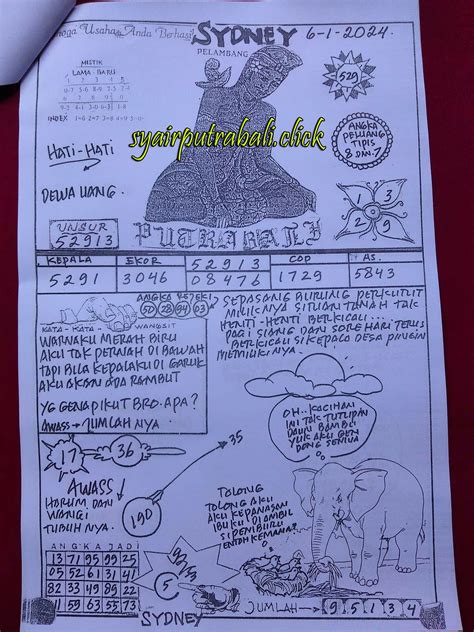 Semoga Usaha Anda Berhasil
SYDNEY
6-1-2024.
PELAMBANG
MISTIK
LAMA - BARU
1 2 3 4 5
0-7 3-8
6 7 8 9 0
INDEX
529
syairputrabali.click
ANGKA
PELUANG
TIPIS
8 DAN 7
HATI-HATI
DEWA UANG.
1
5
3
2
9
UNSUR
52913
PUTRABALI
KEPALA
EKOR
52913
COP
AS.
5291
3046
08476
1729
5843
ANGKA
50 28 94 03
KATA - KATA - WANGSIT
WARNAKU MERAH BIRU
AKU TAK PERNAH DI BAWAH
TAPI BILA KEPALAKU DI GARUK
AKU AKAN ADA RAMBUT
YG GENAPIKUT BRO. APA?
AWASS → JUMLAH NYA.
SEPASANG BURUNG PERKUTUT
MILIKNYA SITUAN TANAH TAK
HENTI-HENTI BERKICAU...
PAGI SIANG DAN SORE HARI TERUS
BERKICAU SIKEPALO DESA PINGIN
MEMILIKINYA.
OH.. KACIHAN
INI TAK TUTUPIN
DAUN BAMBU
YUK AKU
DONG SEMUA
17
36
35
AWASS
HARUM DAN
WANGI
TUBUHNYA.
190
TOLONG
TOLONG AKU
AKU KEPANASAN
IBUKU DI AMBIL
SIPEMBURU
ENTAH KEMANA?
ANGKA JADI
13 71 95 99 25
05 52 61 31 41
82 33 49 86 22
11 59 63 55 73
92/53
5
SYDNEY
JUMLAH → 9 5 1 3 4